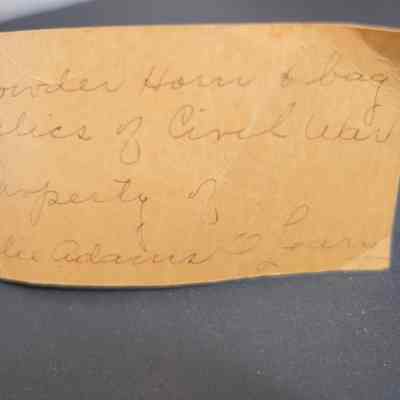 owder Horn & bag
elics of Civil War
roperty of
Adams